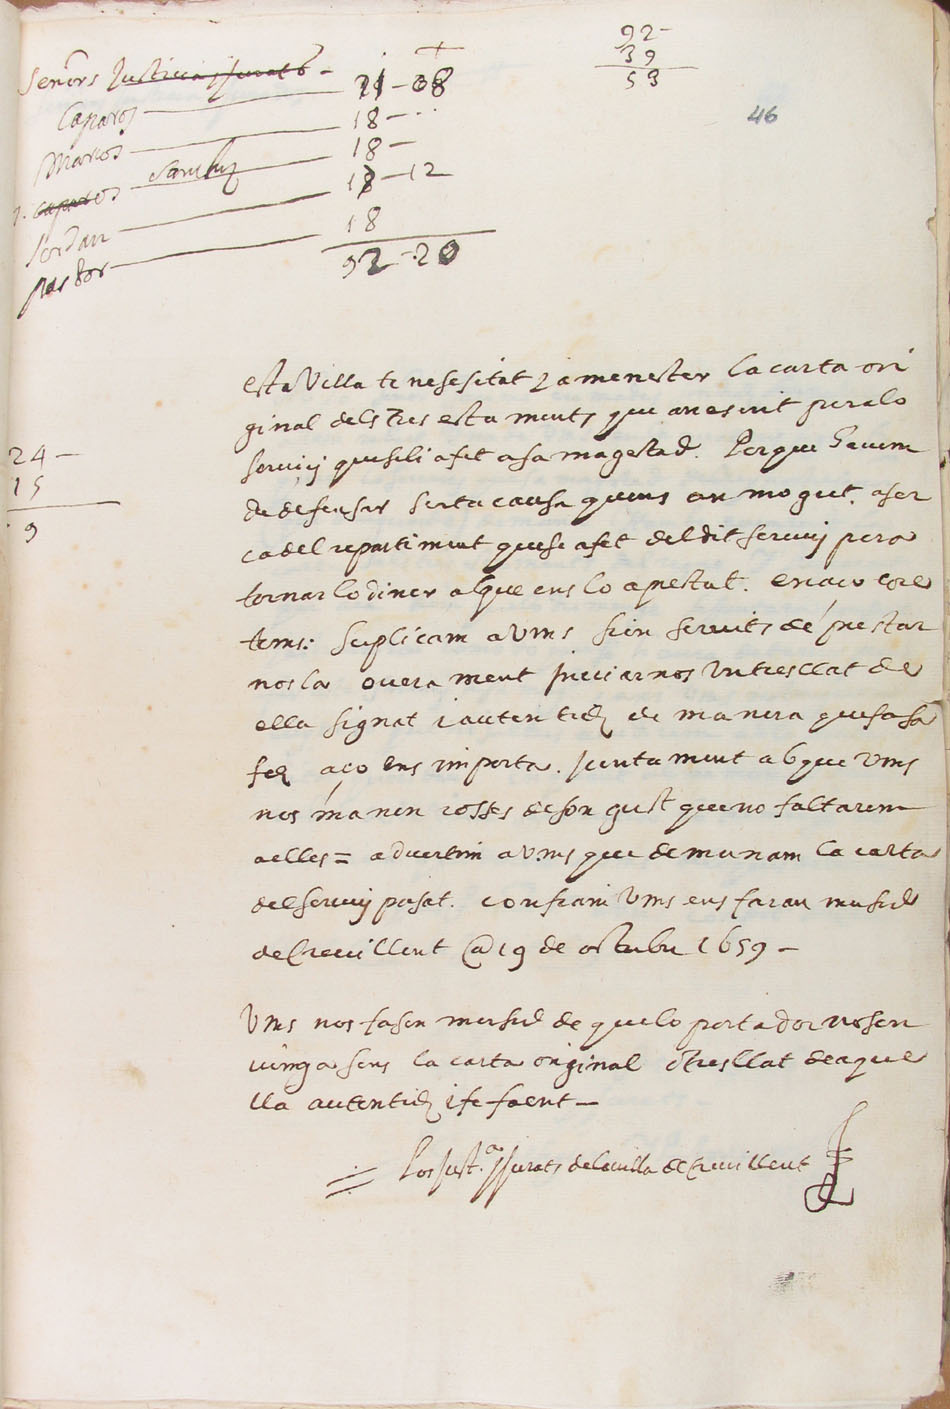 92-
39
53
46
+
Señors Justicia y Jurats -
21-08
Caparos
18-
Marcos
18-
caparos Sanchiz
18-12
Jordan
18
pastor
92-20
24-
15
9
esta Villa te nesesitat y a menester la carta ori
ginal dels tres estaments que an escrit per a lo
servij que seli a fet a sa magestad. Perque havem
de defensar serta causa quens an mogut. aser
ca del repartiment que se a fet del dit servij pera
tornar lo diner al que ens lo a prestat. en acó core
tems: suplicam a Vms sien servits de prestar
nosla overament inviarnos un tresllat de
ella signat i autentich de manera que fasa
feé açó ens importa. juntament ab que Vms
nos manen coses de son gust que no faltarem
a elles = advertim a Vms que demanam la carta
del servij pasat. confiam Vms ens faran mersed
de Crevillent @ 19 de octubre 1659 -
Vms nos fasen mersed de que lo portador no sen
vinga sens la carta original o tresllat de aque
lla autentich i fefaent -
Los Just.ª y Jurats de la villa de Crevillent